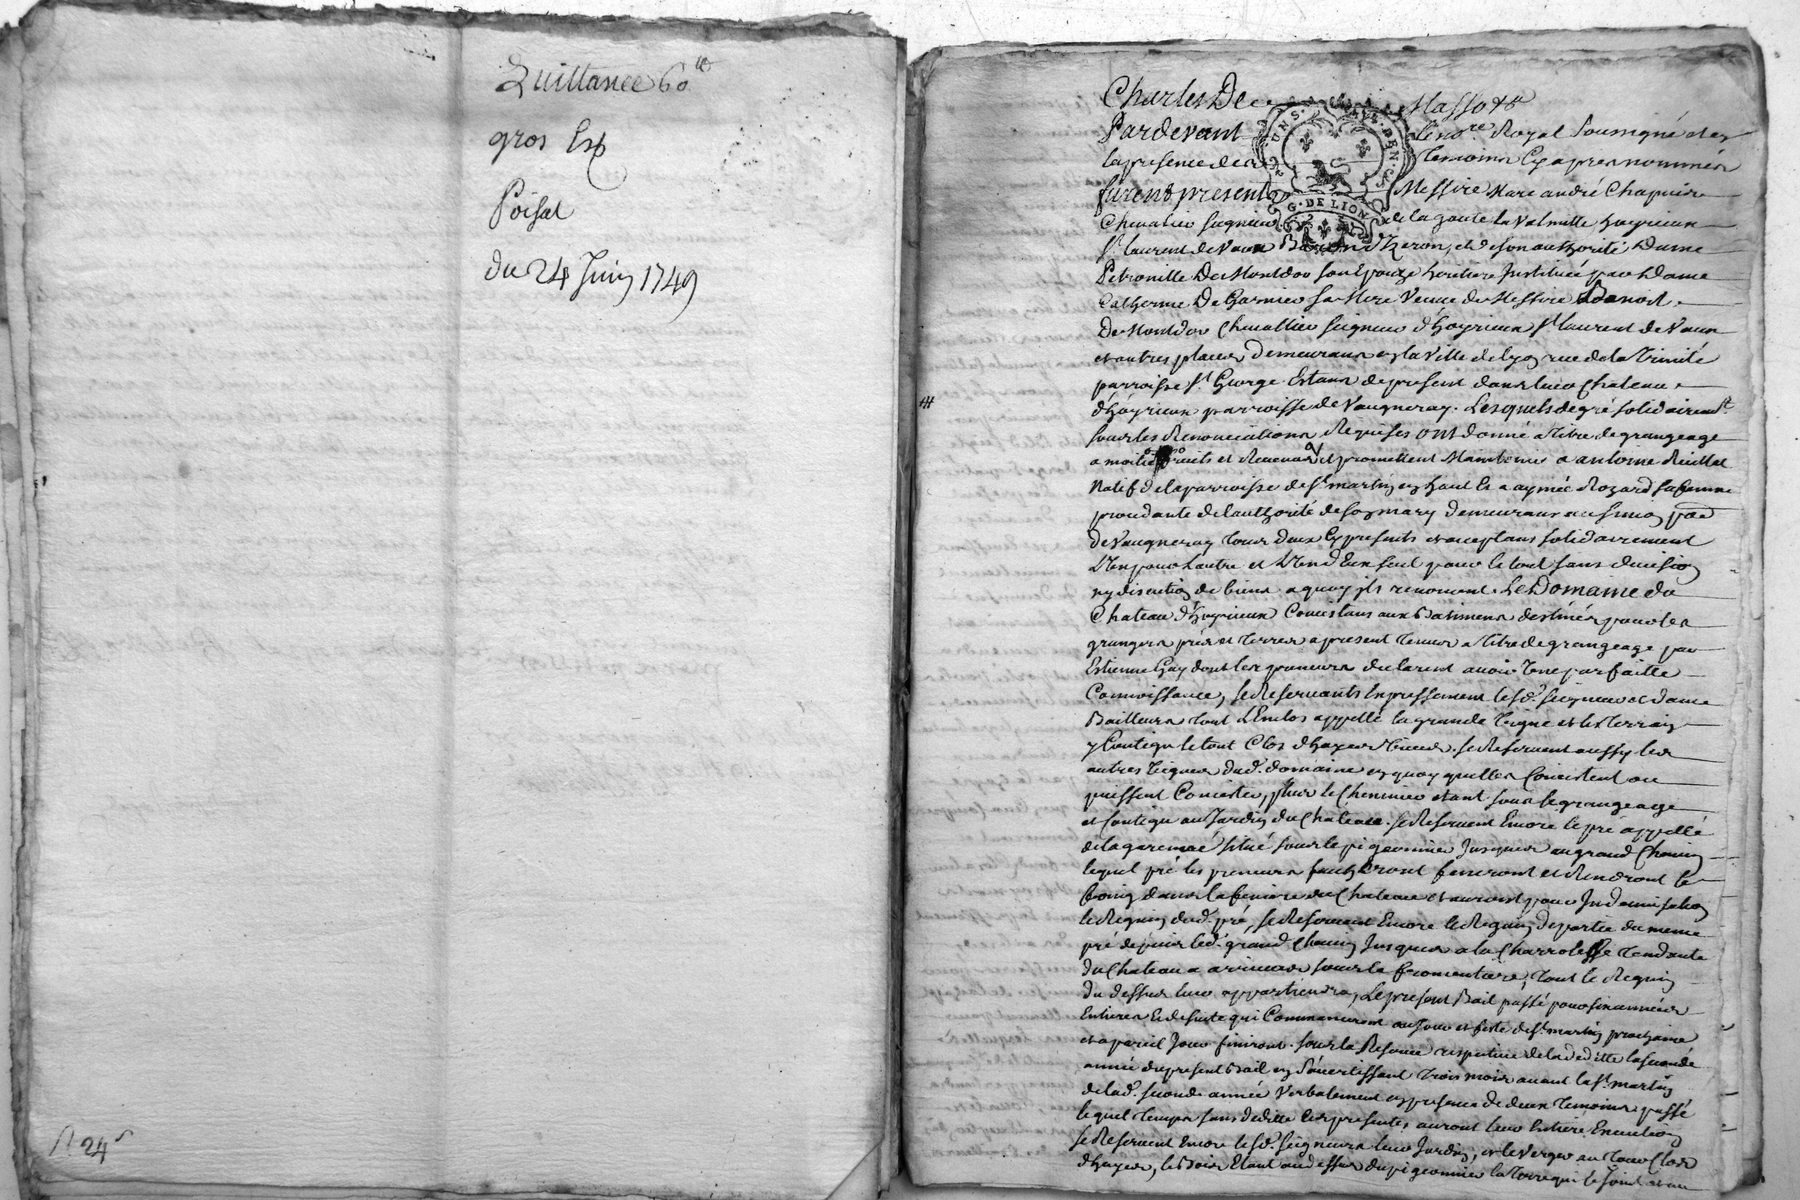 Quittance 60 lt
gros Exp
Poisat
du 24 Juin 1749
N 24
Charles De Masso &a
Pardevant le no.re Royal soussigné et en
la presence des Temoins cy apres nommés
furent presents Messire Marc andré Chapuis
Chevalier seigneur de la goute la Valmitte hoyrieux
St laurent de Vaux Baron d'Izeron, et de son authorité Dame
Petronille De Montdor son Epouze heritiere Instituée par Dame
Catherine De Garnier sa Mere Veuve de Messire Benoist
De Montdor Chevallier seigneur d'hoyrieux St laurent de Vaux
et autres places Demeurans en la Ville de Lyon rue de la Trinité
parroisse St George Estans de present dans leur Chateau
d'hoyrieux parroisse de Vaugneray. Lesquels de gré solidairemt
sous les Renonciations Requises ont donné a titre de grangeage
a moitié fruits et promettent Maintenir a antoine
Natif de la parroisse de St martin en haut Et a aymée Rozard sa femme
procedante de l'authorité de son mary demeurans
de Vaugneray tous deux cy presents et acceptans solidairement
L'un pour L'autre et L'un d'Eux seul pour le tout sans division
ny discution de biens a quoy ils renoncent. Le Domaine du
Chateau d'hoyrieux Concistans aux Batimens destinés pour les
grangers prés et terres a present tenus a titre de grangeage par
Estienne Gay dont les preneurs declarent avoir Une parfaitte
Connoissance, se Reservants Expressement lesd. seigneur et dame
Bailleurs tout L'Enclos appellé la grande Vigne et le terrain
y Contigu le tout Clos d'hayes Vives. se Reservent aussy les
autres Vignes dud. domaine en quoy qu'elles Concistent ou
puissent Concister, plus le Chenevier etant sous le grangeage
et Contigu au Jardin du Chateau. se Reservent Encore le pré appellé
de la garenne situé sous le pigeonnier Jusques au grand Chemin
lequel pré les preneurs faucheront feneront et Rendront le
foing dans la feniere du Chateau et auront pour Indemnisation
le Reguin dud. pré, se Reservent Encore le Reguin de partie du meme
pré depuis led. grand Chemin Jusques a la Charrotesse tendante
du Chateau a arriver sous la fromentiere, tout le Reguin
du dessus leur appartiendra, Le present Bail passé pour six années
Entieres Et de suite qui Commenceront au Jour et feste de St martin prochaine
et a pareil Jour finiront. sous la Reserve respective de la deditte la seconde
année du present Bail en s'avertissant trois mois avant la St martin
de lad. seconde année Verbalement en presence de deux temoins passé
lequel temps sans deditte les presentes auront leur Entiere Execution
se Reservent Encore lesd. seigneurs leur Jardin, et le Verger au tour Clos
d'hayes, le Bois Etant au dessus du pigeonnier la terre qui le Joint